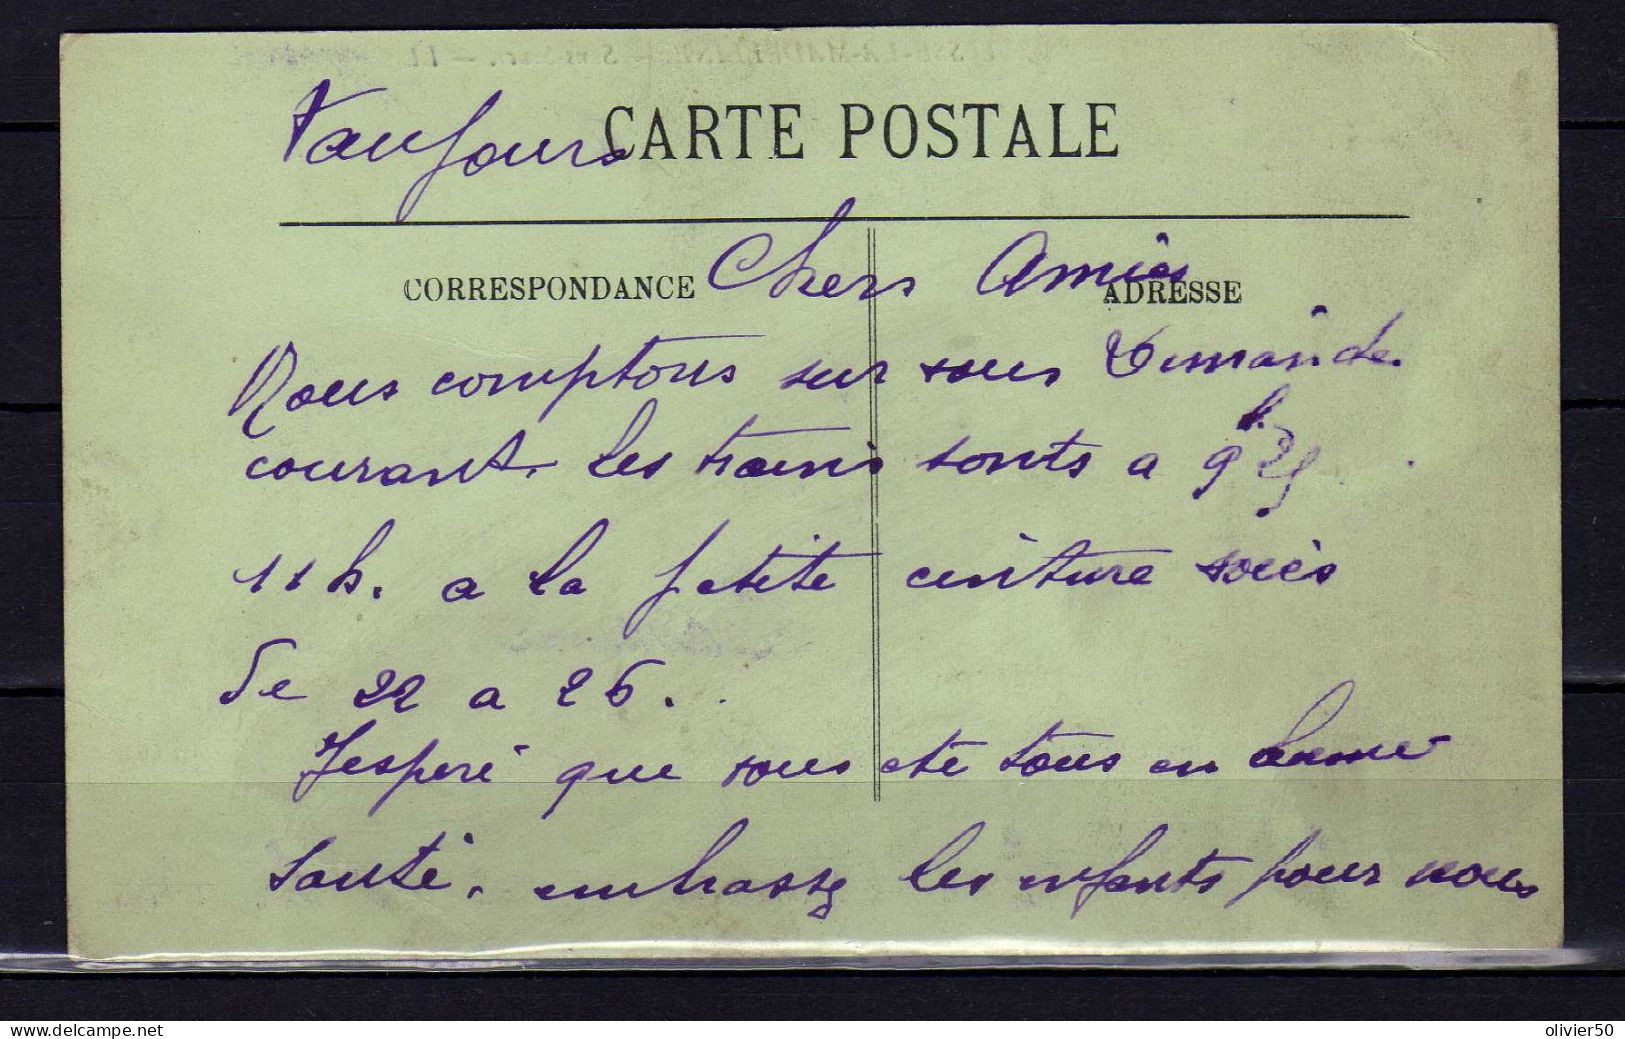 Vaujours
CARTE POSTALE
CORRESPONDANCE
ADRESSE
Chers Amis
Nous comptons sur vous Dimanche
courant. les trains sonts a 9h 25
11h. a la petite cinture voiès
de 22 a 26.
J'esperé que vous ete tous en bonne
Santé. embrassé les enfants pour nous
olivier50